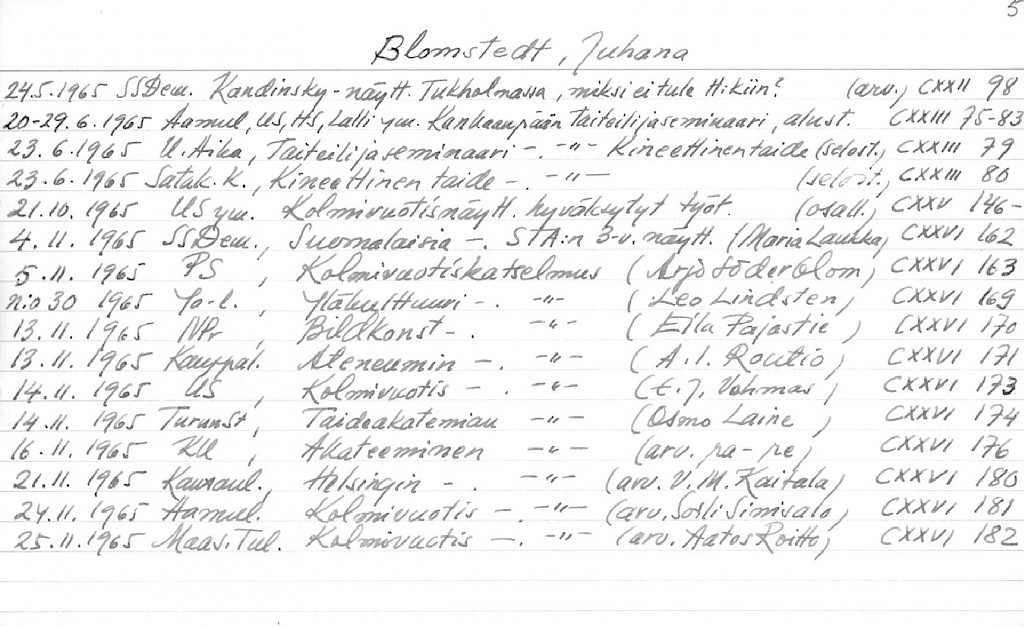 5
Blomstedt, Juhana
24.5.1965 SSDem. Kandinsky-näytt. Tukholmassa, miksi ei tule H:kiin? (arv.) CXXII 98
20-29.6.1965 Aamul, US, HS, Lalli ym. Kankaanpään Taiteilijaseminaari, alust. CXXIII 75-83
23.6.1965 U. Aika, Taiteilijaseminaari -. -"- Kineettinen taide (selost.) CXXIII 79
23.6.1965 Satak. K., Kineettinen taide -. -"- (selost.) CXXIII 80
21.10.1965 US ym. Kolmivuotisnäytt. hyväksytyt työt. (osall.) CXXV 146-
4.11.1965 SSDem., Suomalaisia -. STA:n 3-v. näytt. (Maria Laukka) CXXVI 162
5.11.1965 PS, Kolmivuotiskatselmus (Arjo Söderblom) CXXVI 163
n:o 30 1965 Yo-l. -. -"- (Leo Lindsten) CXXVI 169
13.11.1965 NPr, Bildkonst -. -"- (Eila Pajastie) CXXVI 170
13.11.1965 Kauppal. Ateneumin -. -"- (A.I. Routio) CXXVI 171
14.11.1965 US, Kolmivuotis -. -"- (E.J. Vehmas) CXXVI 173
14.11.1965 Turunst, Taideakatemian -"- (Osmo Laine) CXXVI 174
16.11.1965 KU, Akateeminen -"- (arv. pa-re) CXXVI 176
21.11.1965 Helsingin -. -"- (arv. V.M. Kaitala) CXXVI 180
24.11.1965 Aamul. Kolmivuotis -. -"- (arv. Sinisalo) CXXVI 181
25.11.1965 Maas. Tul. Kolmivuotis -. -"- (arv. Aatos Roitto) CXXVI 182